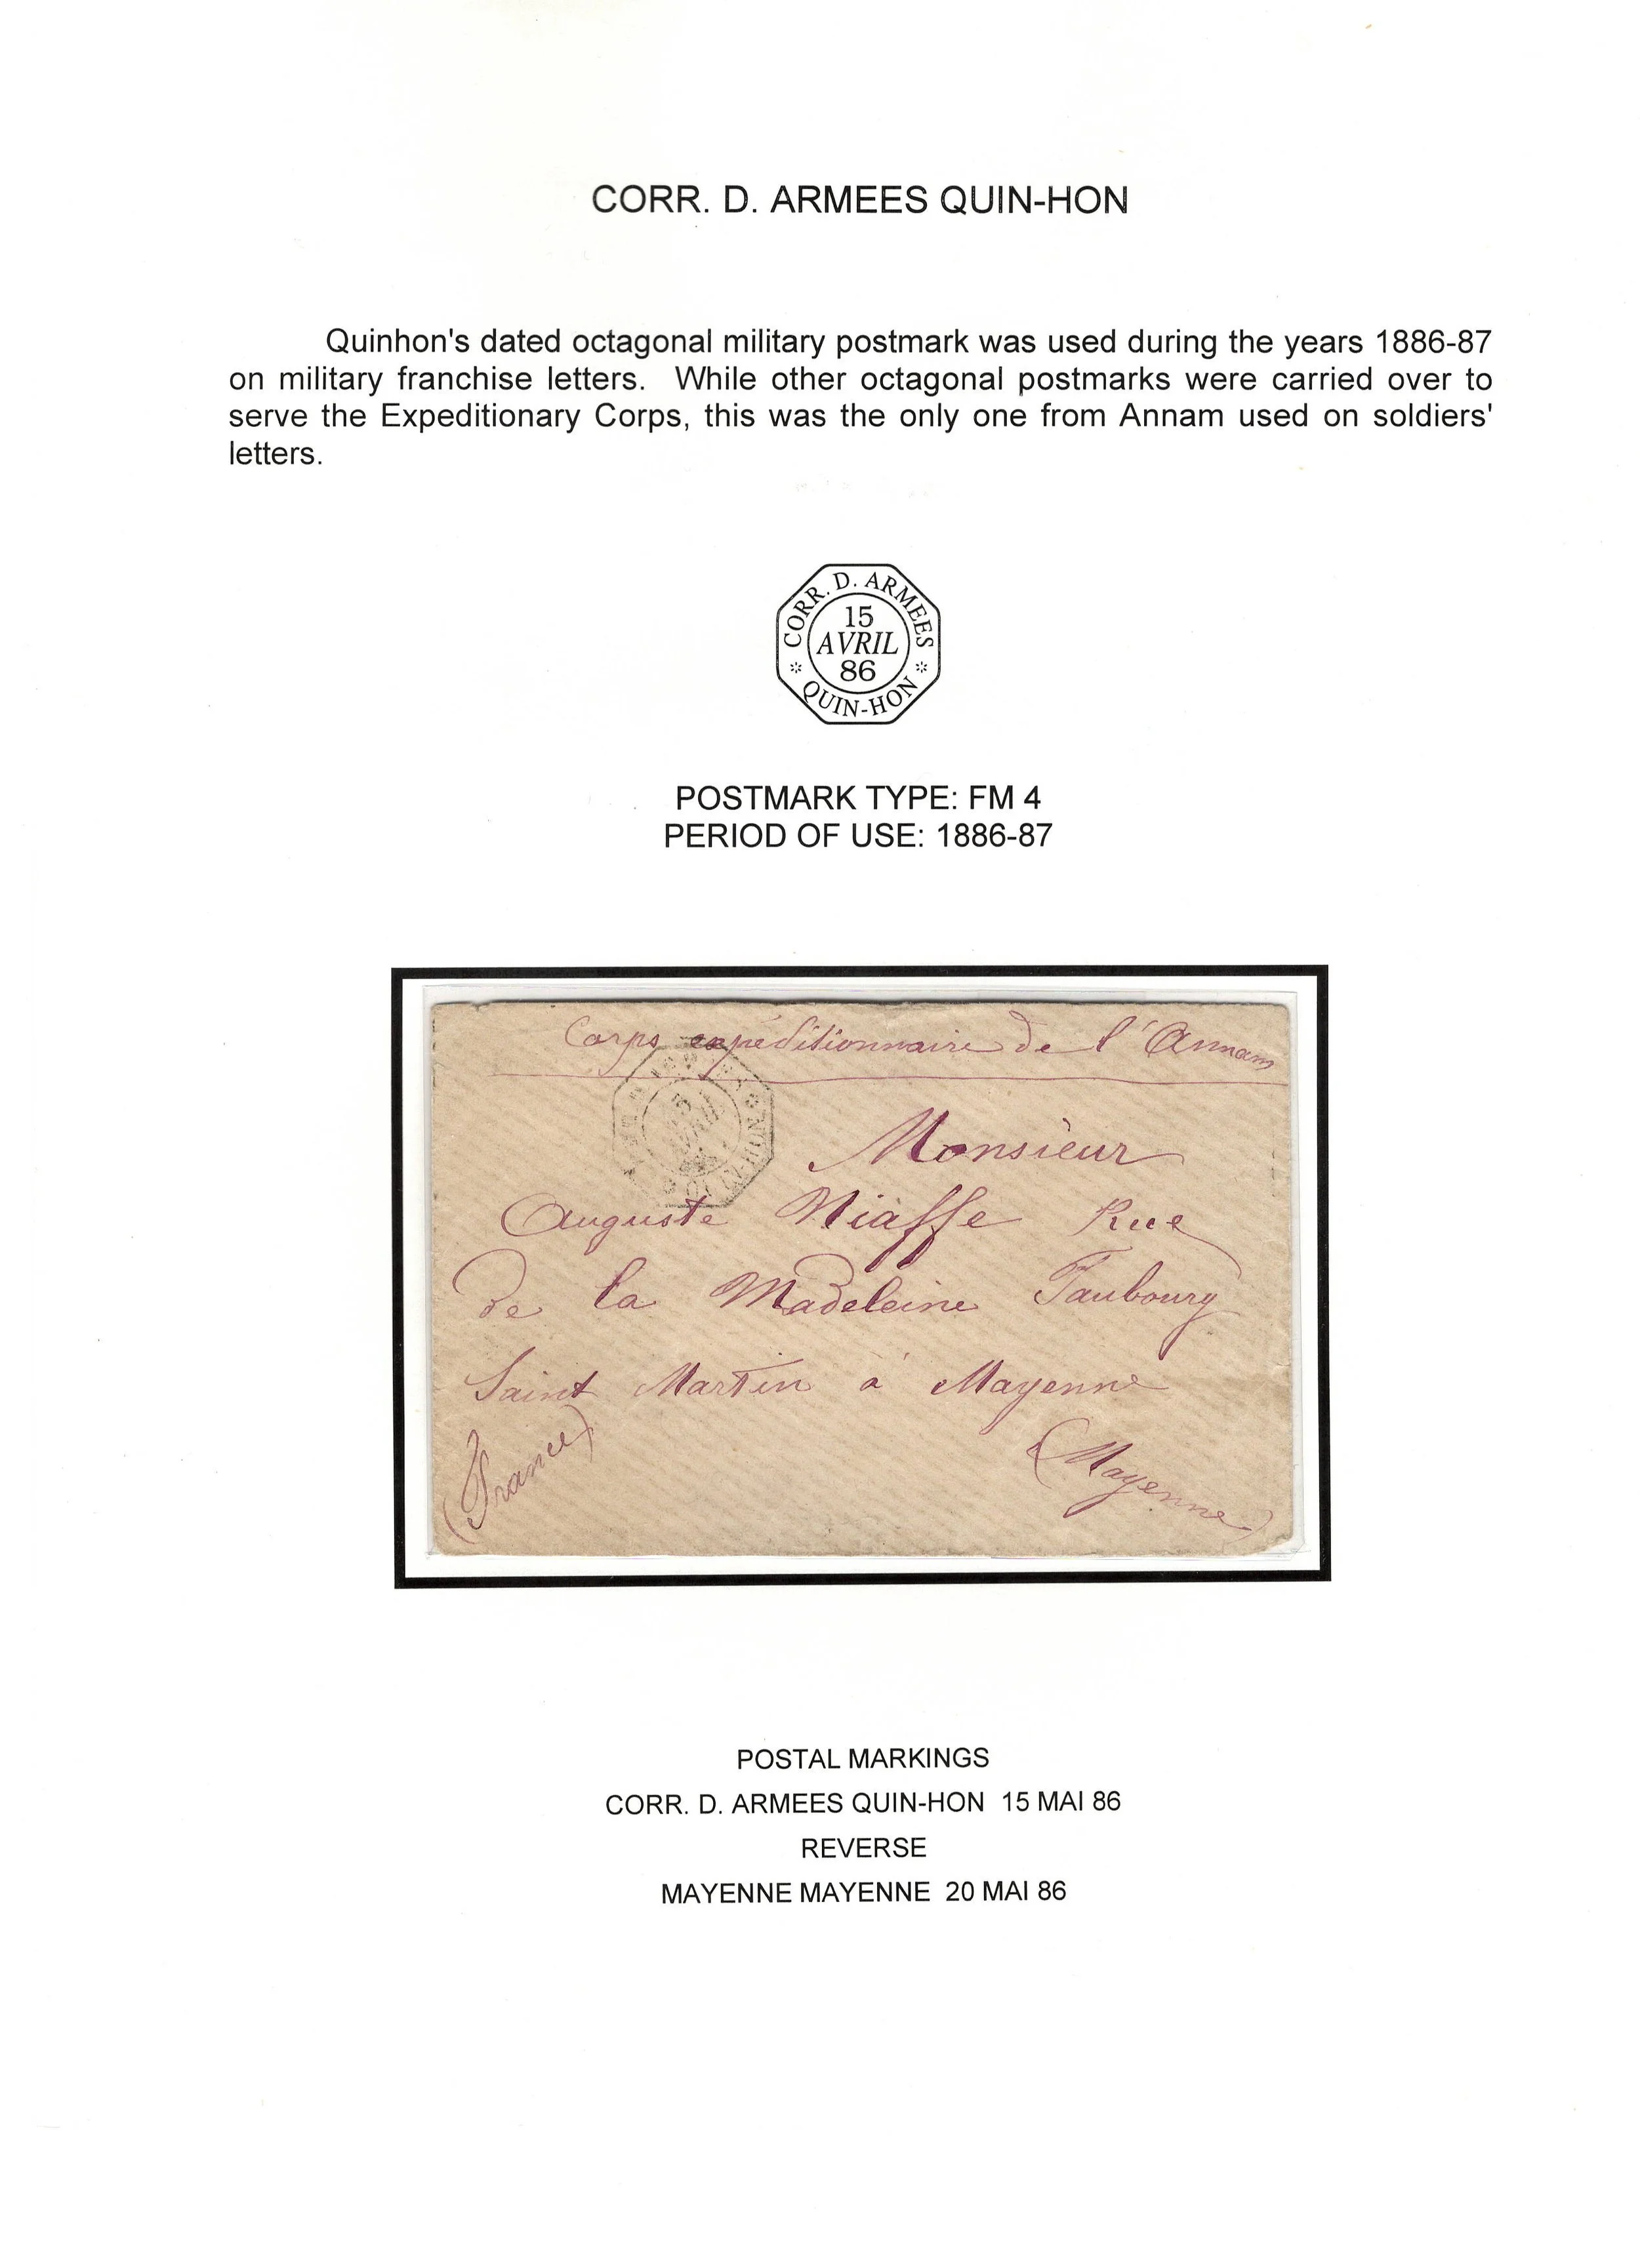 CORR. D. ARMEES QUIN-HON
Quinhon's dated octagonal military postmark was used during the years 1886-87
on military franchise letters. While other octagonal postmarks were carried over to
serve the Expeditionary Corps, this was the only one from Annam used on soldiers'
letters.
CORR. D. ARMEES
15
AVRIL
86
* QUIN-HON *
POSTMARK TYPE: FM 4
PERIOD OF USE: 1886-87
Corps expéditionnaire de l'Annam
Monsieur
Auguste Niaffe Rue
de la Madeleine Faubourg
Saint Martin à Mayenne
(France)
(Mayenne)
POSTAL MARKINGS
CORR. D. ARMEES QUIN-HON 15 MAI 86
REVERSE
MAYENNE MAYENNE 20 MAI 86